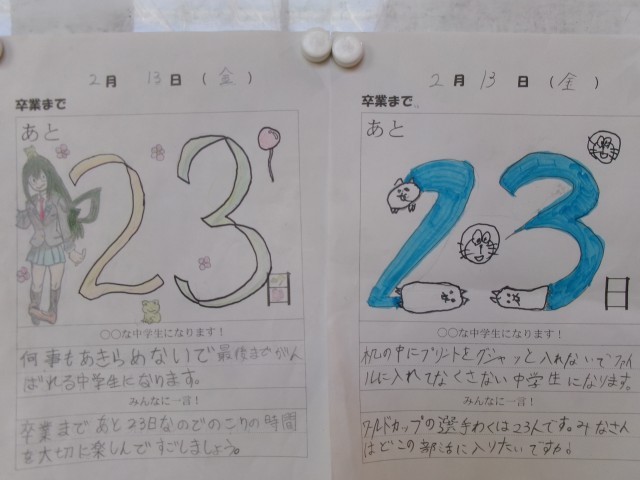 2月 13日(金)
卒業まで
あと
23日
○○な中学生になります!
何事もあきらめないで最後までがん
ばれる中学生になります。
みんなに一言!
卒業まであと23日なのでのこりの時間
を大切に楽しんですごしましょう。
2月 13日(金)
卒業まで
あと
23日
○○な中学生になります!
机の中にプリントをグシャッと入れないでファイ
ルに入れてなくさない中学生になります。
みんなに一言!
ワールドカップの選手わくは23人です。みなさん
はどこの部活に入りたいですか?